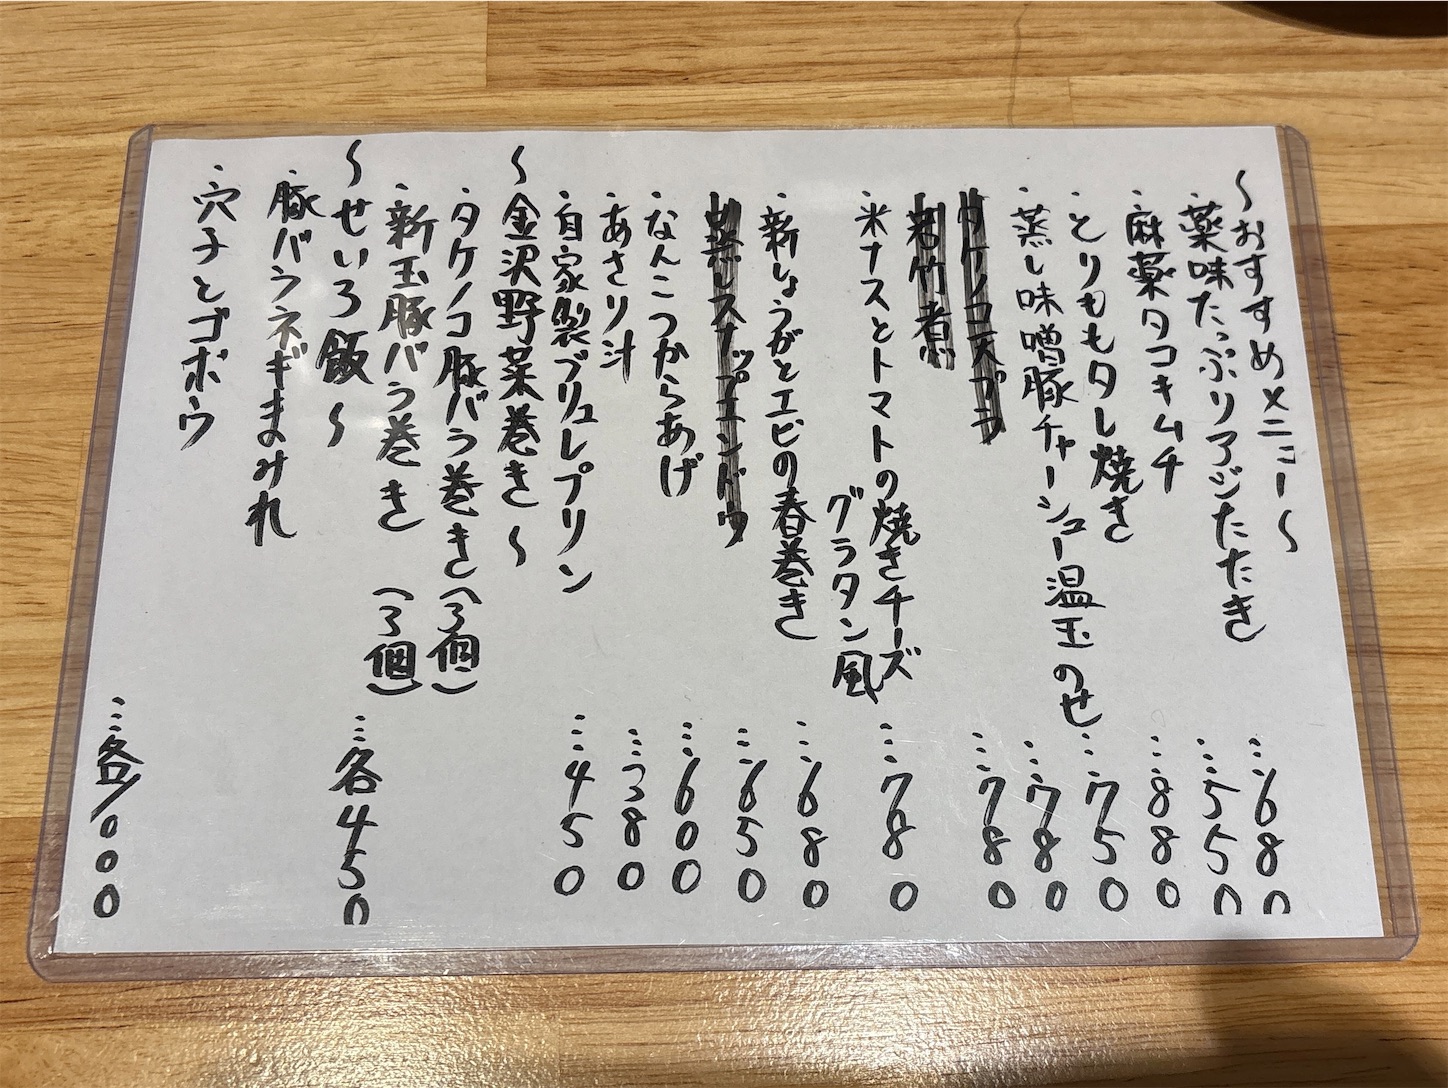 〜おすすめメニュー〜
・薬味たっぷりアジたたき …680
・麻薬タコキムチ …550
・とりももタレ焼き …880
・蒸し味噌豚チャーシュー温玉のせ …750
・タケノコ天プラ …780
・若竹煮 …780
・米ナスとトマトの焼きチーズ
グラタン風 …780
・新しょうがとエビの春巻き …680
・蒸しスナップエンドウ …650
・なんこつからあげ …600
・あさり汁 …380
・自家製ブリュレプリン …450
〜金沢野菜巻き〜
・タケノコ豚バラ巻き(3個)
・新玉豚バラ巻き (3個) …各450
〜せいろ飯〜
・豚バラネギまみれ
・穴子とゴボウ …各1000